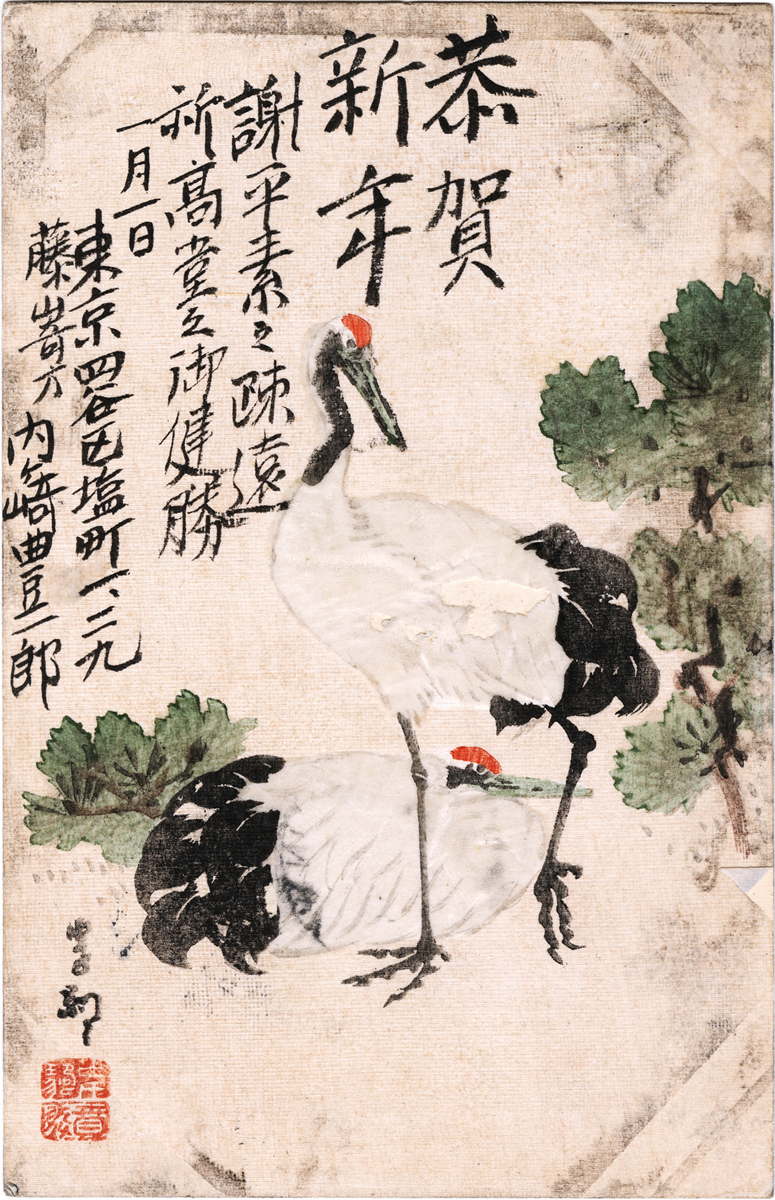 恭賀
新年
謝平素之疎遠
祈高堂之御健勝
一月一日
東京四谷区塩町一、二九
藤嵜方 内崎豊一郎